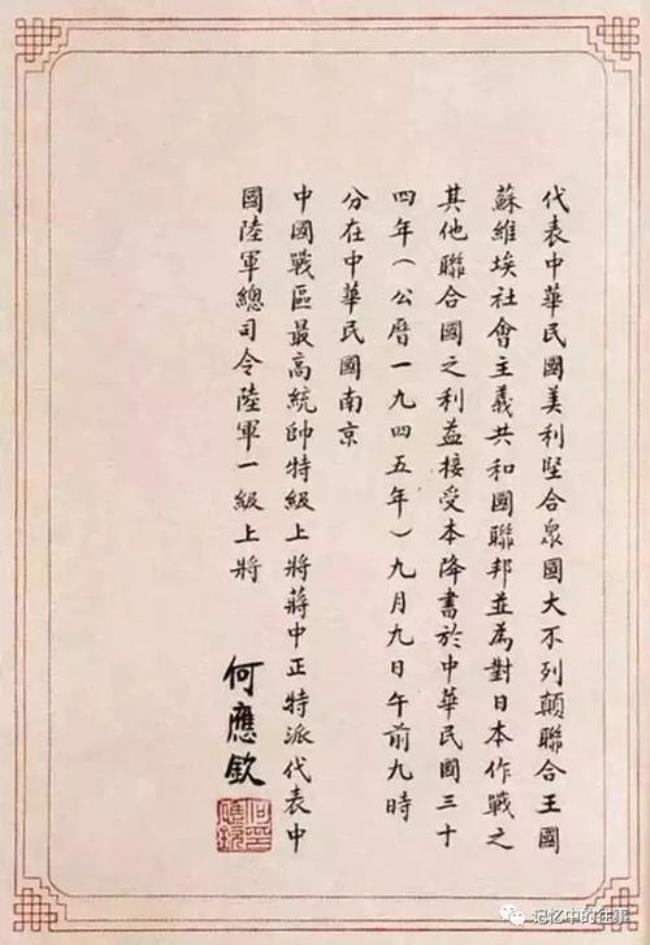 代表中華民國美利堅合衆國大不列顛聯合王國
蘇維埃社會主義共和國聯邦並為對日本作戰之
其他聯合國之利益接受本降書於中華民國三十
四年(公曆一九四五年)九月九日午前九時
分在中華民國南京
中國戰區最高統帥特級上將蔣中正特派代表中
國陸軍總司令陸軍一級上將
何應欽
何應欽印
记忆中的往事